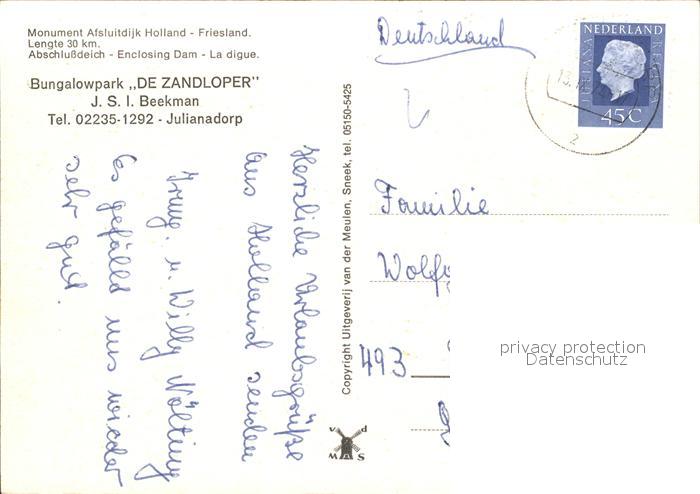 Monument Afsluitdijk Holland - Friesland.
Lengte 30 km.
Abschlußdeich - Enclosing Dam - La digue.
Bungalowpark „DE ZANDLOPER"
J. S. I. Beekman
Tel. 02235-1292 - Julianadorp
Herzliche Urlaubsgrüße
aus Holland senden
Irmg. u. Willy Nölting
Es gefällt uns wieder
sehr gut.
Copyright Uitgeverij van der Meulen, Sneek, tel. 05150-5425
v d
W S
Deutschland
NEDERLAND
JULIANA REGINA
45 C
Familie
Wolfg
493
privacy protection
Datenschutz